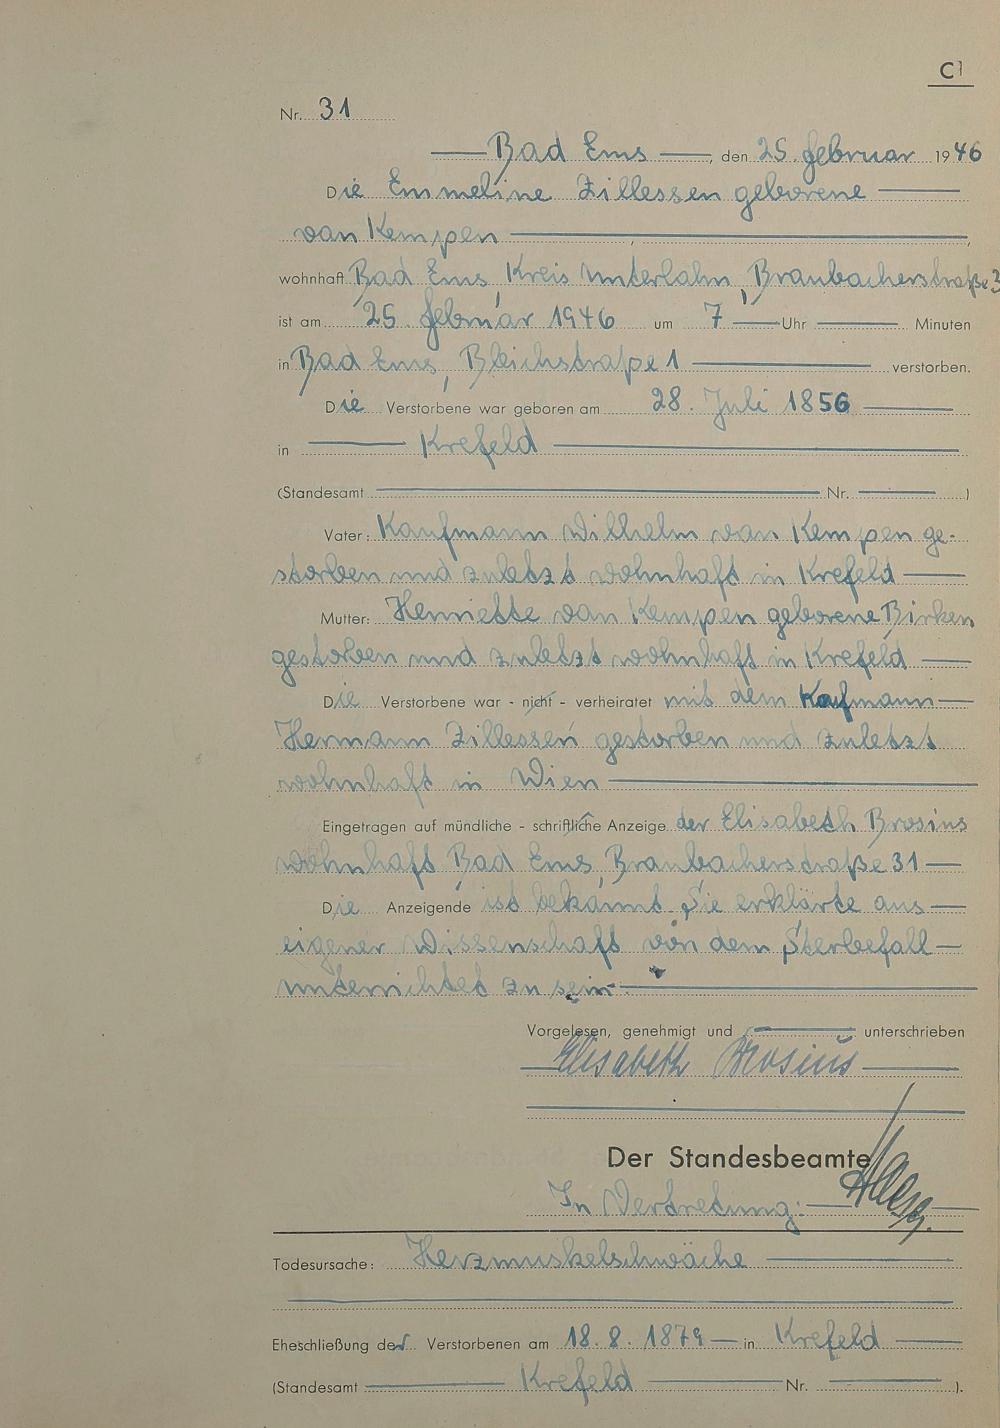 C1
Nr. 31
Bad Ems, den 25. Februar 1946
Die Emmeline Zillessen geborene
van Kempen
wohnhaft Bad Ems, Kreis Unterlahn, Braubacherstraße 3
ist am 25. Februar 1946 um 7 Uhr Minuten
in Bad Ems, Bleichstraße 1 verstorben.
Die Verstorbene war geboren am 28. Juli 1856
in Krefeld
(Standesamt Nr. )
Vater: Kaufmann Wilhelm van Kempen ge-
storben und zuletzt wohnhaft in Krefeld
Mutter: Henriette van Kempen geborene Birken
gestorben und zuletzt wohnhaft in Krefeld
Die Verstorbene war - nicht - verheiratet mit dem Kaufmann
Hermann Zillessen gestorben und zuletzt
wohnhaft in Wien
Eingetragen auf mündliche - schriftliche Anzeige der Elisabeth Brosius
wohnhaft Bad Ems, Braubacherstraße 31
Die Anzeigende ist bekannt. Sie erklärte aus
eigener Wissenschaft von dem Sterbefall
unterrichtet zu sein.
Vorgelesen, genehmigt und unterschrieben
Elisabeth Brosius
Der Standesbeamte
In Vertretung:
Todesursache: Herzmuskelschwäche
Eheschließung der Verstorbenen am 18. 8. 1879 in Krefeld
(Standesamt Krefeld Nr. ).